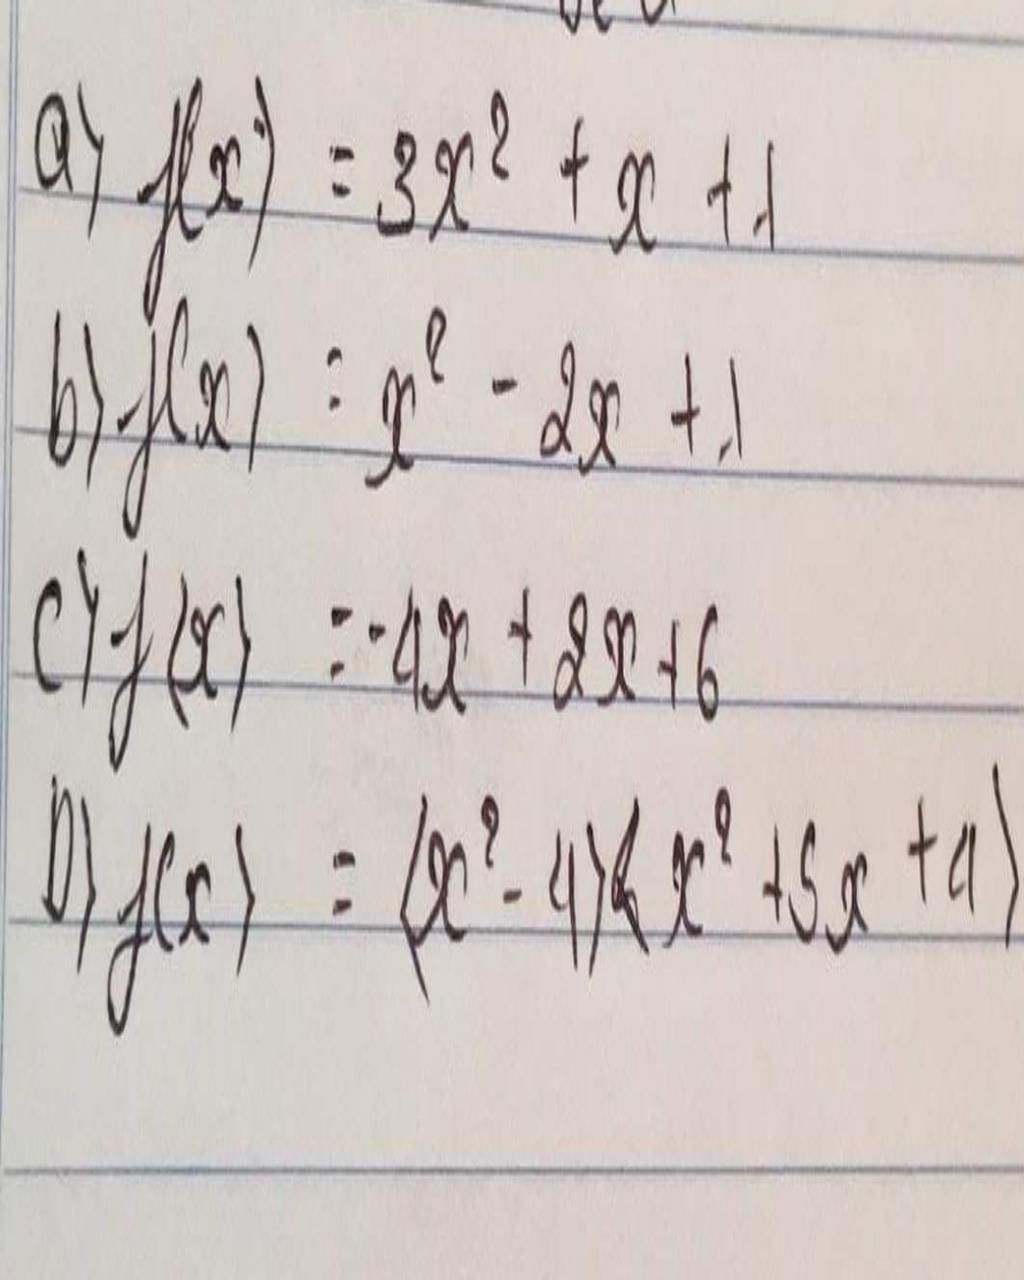 a) f(x) = 3x² + x + 1
b) f(x) = x² - 2x + 1
c) f(x) = -4x + 2x + 6
D) f(x) = (x² - 4)(x² + 5x + 4)